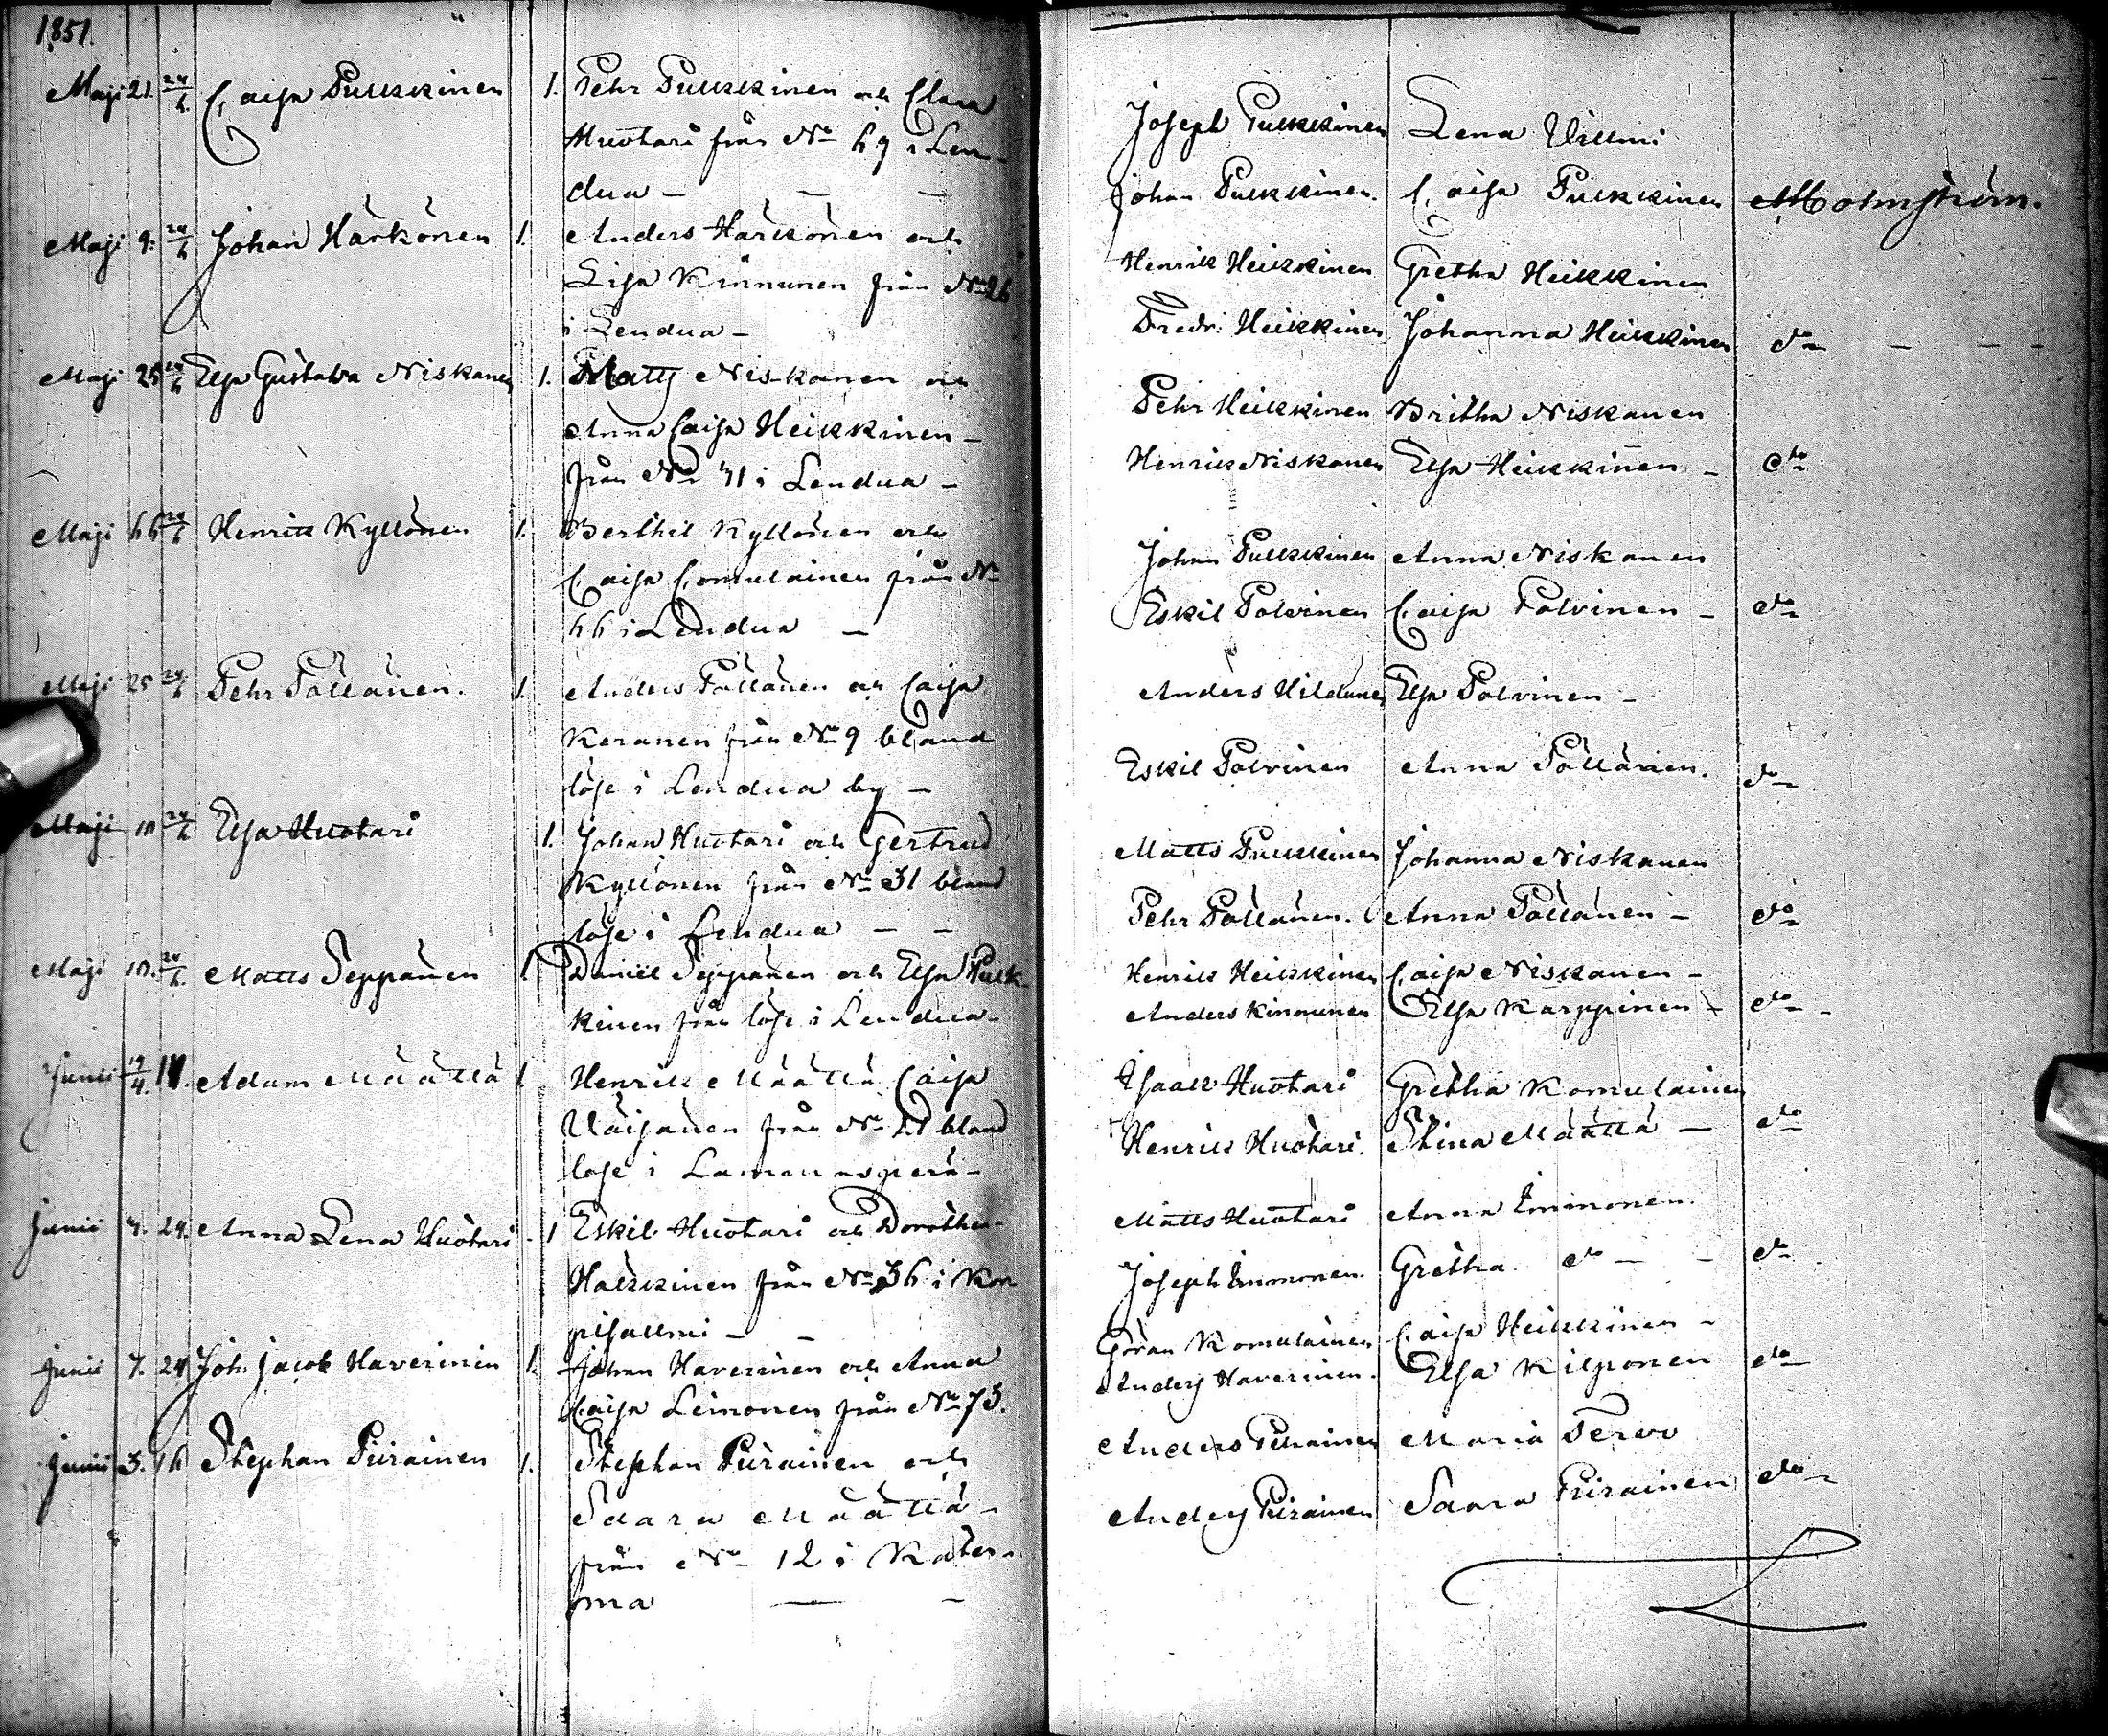 1851.
Maji 21. 24/6 Caisa Pulkkinen 1. Pehr Pulkkinen och Clara
Huotari från No 69 i Len-
dua —
Maji 9. 24/6 Johan Härkönen 1. Anders Härkönen och
Lisa Kinnunen från No 26
i Lendua —
Maji 25 24/6 Elsa Gustava Niskanen 1. Matts Niskanen och
Anna Caisa Heikkinen —
från No 71 i Lendua —
Maji 24/6 Henrik Kyllönen 1. Berthil Kyllönen och
Caisa Comulainen från No
66 i Lendua —
Maji 25 24/6 Pehr Pällänen. 1. Anders Pällänen och Caisa
Keränen från No 9 bland
löse i Lendua by —
Maji 10 24/6 Elsa Huotari 1. Johan Huotari och Gertrud
Kyllönen från No 31 bland
löse i Lendua — —
Maji 10. 24/6. Matts Seppänen 1. Daniel Seppänen och Elsa Pulk-
kinen från löse i Lendua —
Junii Adam Määttä 1. Henrik Määttä Caisa
Väisänen från No bland
löse i Lammasperä —
Junii 7. 24. Anna Lena Huotari 1 Eskil Huotari och Dorothea
Halkkinen från No 36 i Kor
pisallmi — —
Junii 7. 24 Joh. Jacob Haverinen 1. Johan Haverinen och Anna
Caisa Leinonen från No 73.
Junii 3. 16 Stephan Piirainen 1. Stephan Piirainen och
Saara Määttä —
från No 12 i Kater-
ma — —
Joseph Pulkkinen Lena Villmi
Johan Pulkkinen. Caisa Pulkkinen Malmström.
Henrik Heikkinen Gretha Heikkinen
Fredr: Heikkinen Johanna Heikkinen do — — —
Pehr Heikkinen Britha Niskanen
Henrik Niskanen Elsa Heikkinen — do
Johan Pulkkinen Anna Niskanen
Eskil Polvinen Caisa Polvinen — do
Anders Hildunen Elsa Polvinen —
Eskil Polvinen Anna Pällänen. do
Matts Pulkkinen Johanna Niskanen
Pehr Pällänen. Anna Pällänen — do
Henrik Heikkinen Caisa Niskanen —
Anders Kinnunen Elsa Karppinen — do
Isaak Huotari Gretha Komulainen
Henrik Huotari. Stina Määttä — do
Matts Huotari Anna Immonen.
Joseph Immonen. Gretha do — — do
Göran Komulainen Caisa Heikkinen —
Anders Haverinen. Elsa Kilponen do
Anders Piirainen Maria Tervo
Anders Piirainen Saara Piirainen do